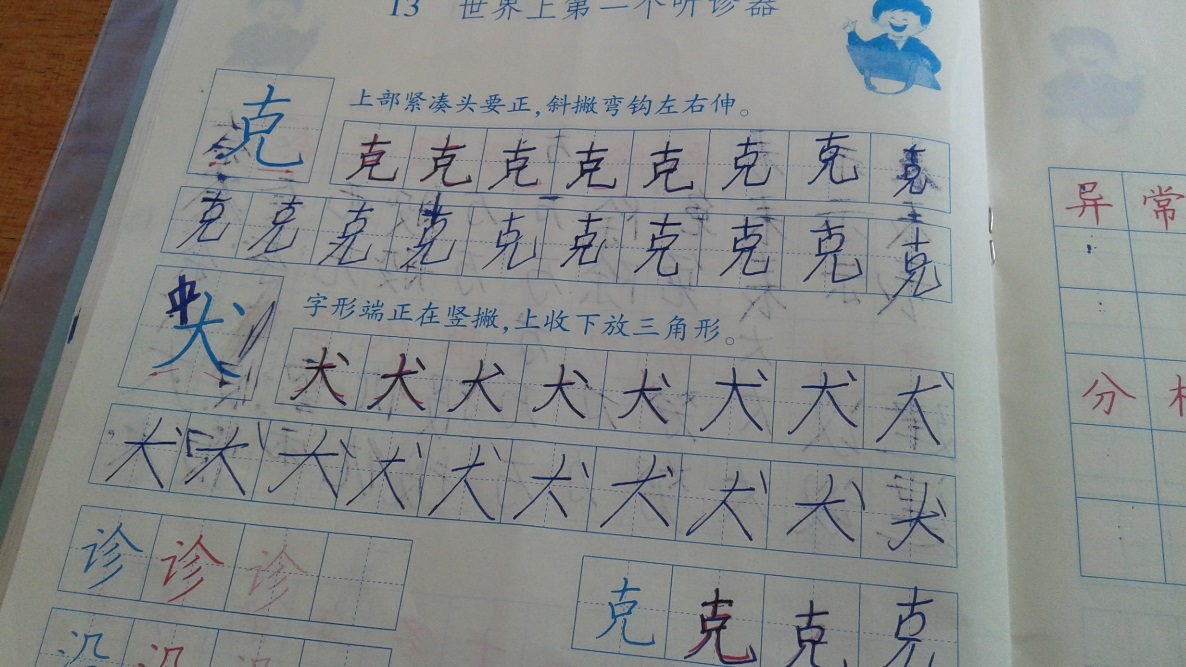 13 世界上第一个听诊器
克
上部紧凑头要正,斜撇弯钩左右伸。
克 克 克 克 克 克 克 克
克 克 克 克 克 克 克 克 克 克
犬
中
字形端正在竖撇,上收下放三角形。
犬 犬 犬 犬 犬 犬 犬 犬
犬 犬 犬 犬 犬 犬 犬 犬 犬 犬
诊 诊 诊
克 克 克 克
异 常
分